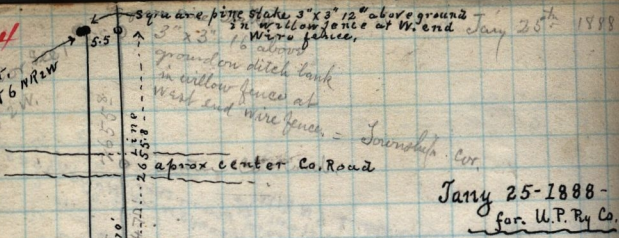 Square pine stake 3" x 3" 12" above ground
in willow fence at W. end
Wire fence.
Jany 25th 1888
4
5.5
3" x 3" 16 above
ground on ditch bank
in willow fence at
West end Wire fence. = Township Cor.
6 N R 2 W
2655.8
Line
2655.8
aprox center Co. Road
Jany 25-1888-
for. U.P. Ry Co.